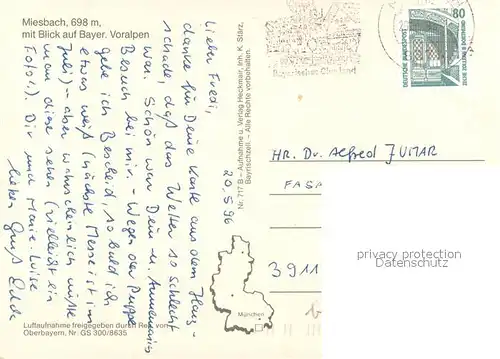 Miesbach, 698 m,
mit Blick auf Bayer. Voralpen
Lieber Fredi,
danke für Deine Karte aus dem Harz –
schade, daß das Wetter so schlecht
war. Schön war Dein u. Annemaries
Besuch bei mir. – Wegen der Puppe
gebe ich Bescheid, sobald ich
etwas weiß (nächste Messe ist im
Juli) – aber wahrscheinlich müßte
man diese sehen (vielleicht ein
Foto!). Dir und Marie-Luise
lieben Gruß
20.5.96
Nr. 717 B – Aufnahme u. Verlag Heckmair, Inh. K. Stärz,
Bayrischzell. – Alle Rechte vorbehalten.
Luftaufnahme freigegeben durch Reg. von
Oberbayern, Nr. GS 300/8635
München
80
DEUTSCHE BUNDESPOST
ZECHE ZOLLERN II DORTMUND
HR. Dr. Alfred
FASA
3911
privacy protection
Datenschutz